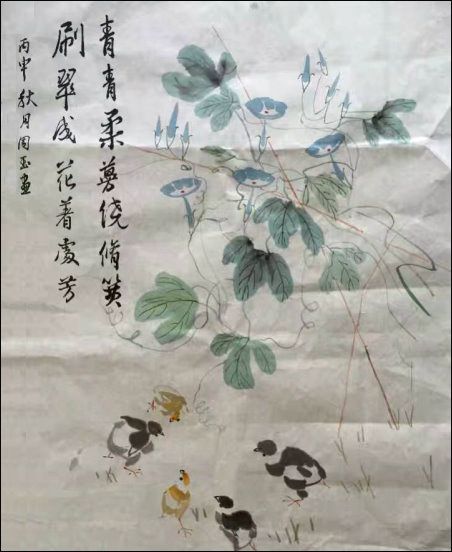 青青柔蔓绕脩篁
刷翠成花着處芳
丙申秋月周玉畫